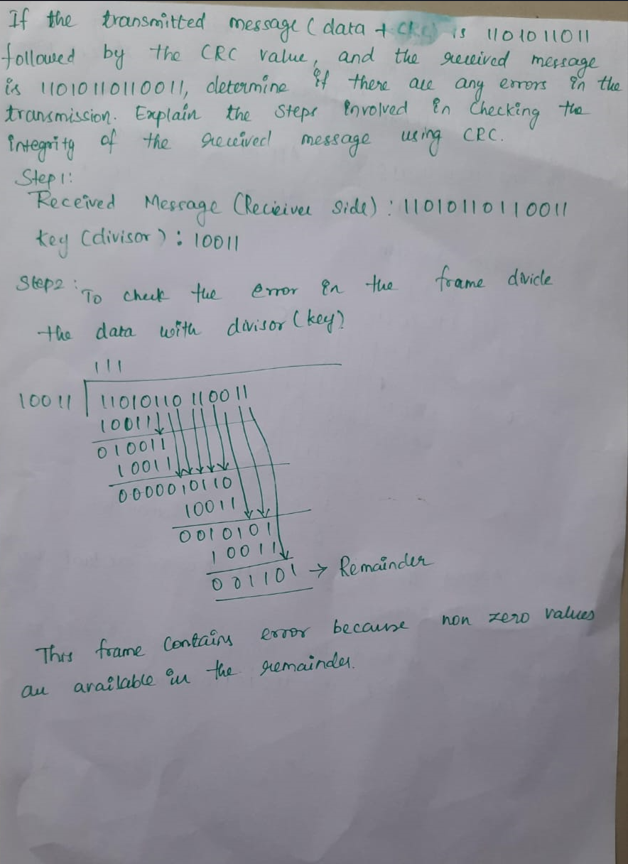 If the transmitted message (data + CRC) is 1101011011
followed by the CRC value, and the received message
is 11010110110011, determine if there are any errors in the
transmission. Explain the steps involved in checking the
integrity of the received message using CRC.
Step1:
Received Message (Reciever side) : 11010110110011
Key (divisor) : 10011
Step2: To check the error in the frame divide
the data with divisor (key)
111
10011 11010110 110011
10011
010011
10011
0000010110
10011
0010101
10011
001101 → Remainder
This frame contains error because non zero values
are available in the remainder.